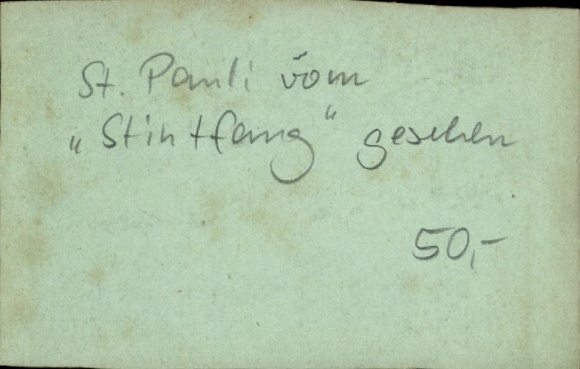 St. Pauli vom
„Stintfang" gesehen
50,-